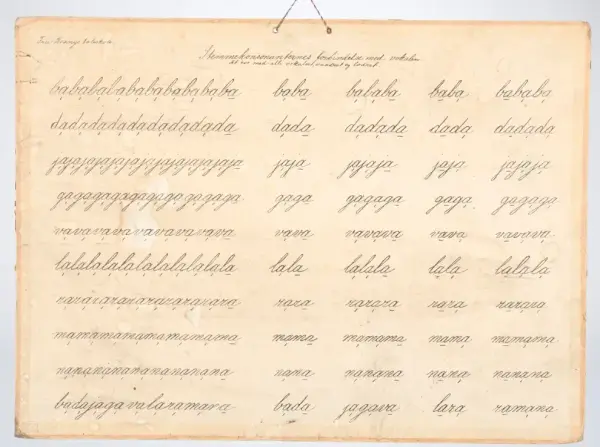 Stemmekonsonanternes forbindelse med vokaler
babababababababababa baba bababa baba bababa
dadadadadadadadadada dada dadada dada dadada
jajajajajajajajajaja jaja jajaja jaja jajaja
gagagagagagagagagaga gaga gagaga gaga gagaga
vavavavavavavavava vava vavava vava vavava
lalalalalalalalalala lala lalala lala lalala
rararararararararara rara rarara rara rarara
mamamamamamamamama mama mamama mama mamama
nanananananananana nana nanana nana nanana
badajagavalaramara bada jagava lara ramana